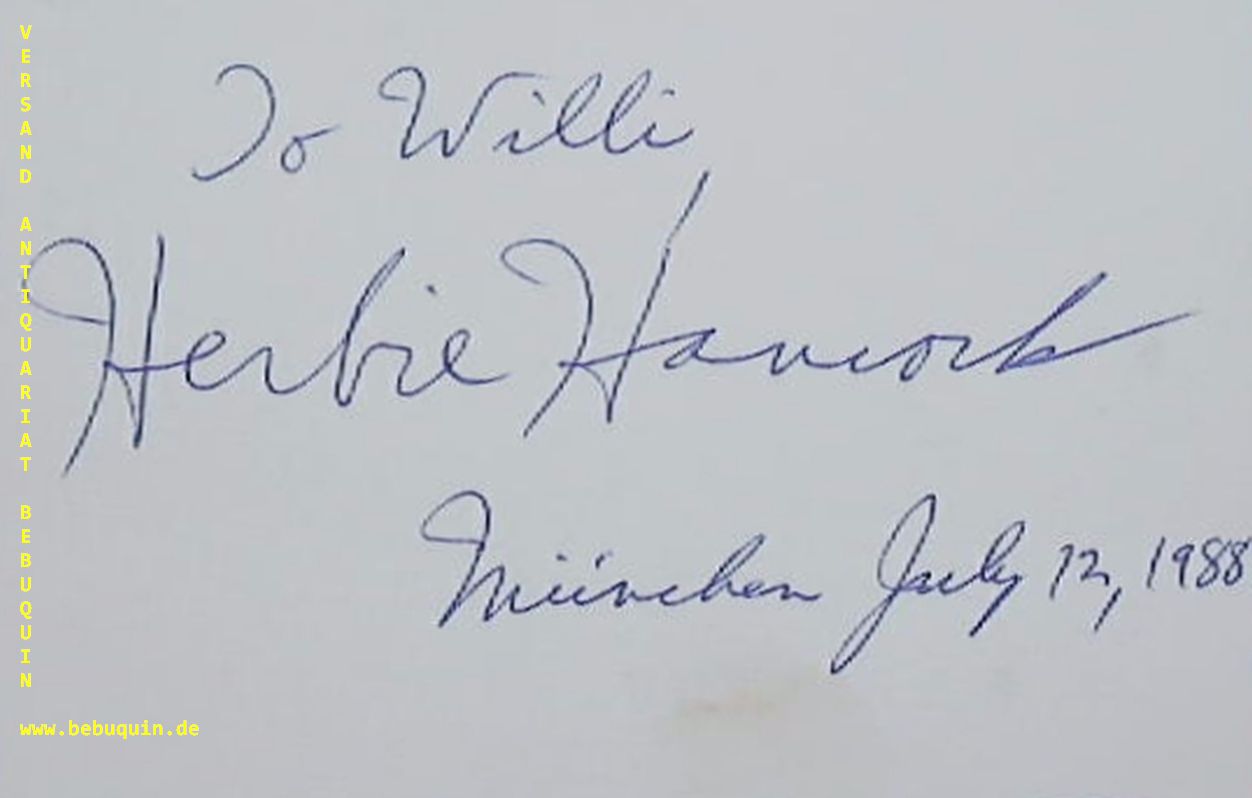 To Willi
Herbie Hancock
München July 12, 1988
VERSAND ANTIQUARIAT BEBUQUIN
www.bebuquin.de